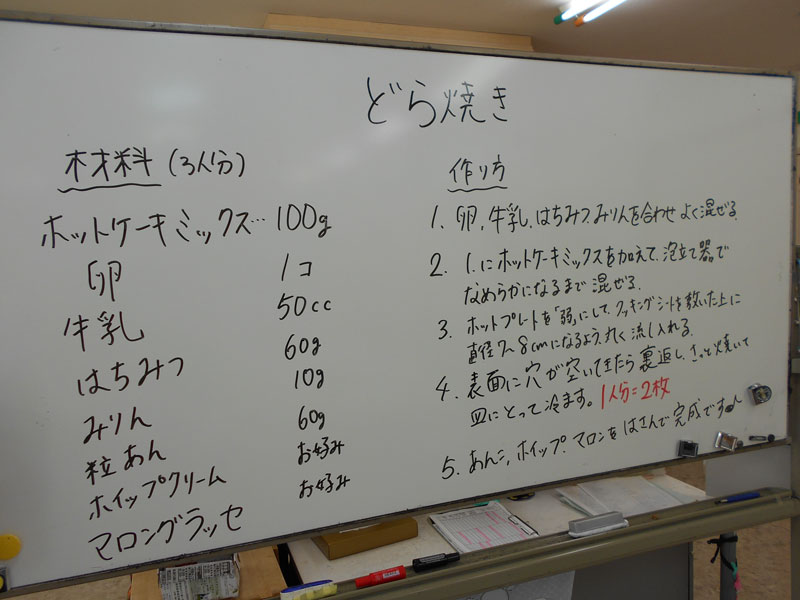 どら焼き
材料(3人分)
ホットケーキミックス… 100g
卵 1コ
牛乳 50cc
はちみつ 60g
みりん 10g
粒あん 60g
ホイップクリーム お好み
マロングラッセ お好み
作り方
1. 卵,牛乳,はちみつ,みりんを合わせよく混ぜる.
2. 1.にホットケーキミックスを加えて,泡立て器で
なめらかになるまで混ぜる.
3. ホットプレートを「弱」にして,クッキングシートを敷いた上に
直径7~8cmになるよう,丸く流し入れる.
4. 表面に穴が空いてきたら裏返し,さっと焼いて
皿にとって冷ます。1人分=2枚
5. あんこ,ホイップ,マロンをはさんで完成です